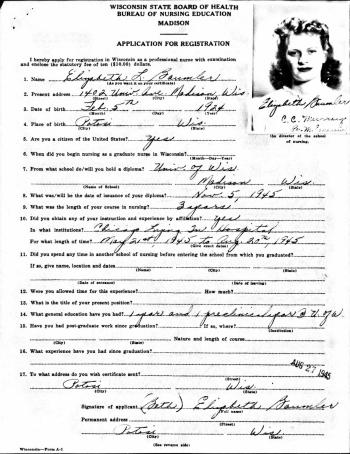 WISCONSIN STATE BOARD OF HEALTH
BUREAU OF NURSING EDUCATION
MADISON
APPLICATION FOR REGISTRATION
I hereby apply for registration in Wisconsin as a professional nurse with examination
and enclose the statutory fee of ten ($10.00) dollars.
1. Name Elizabeth L. Baumler
(As you want it on your certificate)
2. Present address 1402 Univ. Ave. Madison, Wis.
(Street) (City) (State)
3. Date of birth Feb. 5th 1924
(Month) (Day) (Year)
4. Place of birth Potosi Wis.
(City) (State)
5. Are you a citizen of the United States? Yes
6. When did you begin nursing as a graduate nurse in Wisconsin?
(Month—Day—Year)
7. From what school do/will you hold a diploma? Univ. of Wis.
Madison Wis.
(Name of School) (City) (State)
8. What was/will be the date of issuance of your diploma? Nov. 5, 1945
9. What was the length of your course in nursing? 3 years
10. Did you obtain any of your instruction and experience by affiliation? yes
In what institutions? Chicago Lying In Hospital
For what length of time? May 21st 1945 to Aug. 20th 1945
(Give exact dates)
11. Did you spend any time in another school of nursing before entering the school from which you graduated?
If so, give name, location and dates
(Name) (City) (State)
(Date of entrance) (Date of leaving)
12. Were you allowed time for this experience? How much?
13. What is the title of your present position?
14. What general education have you had? 1 year and 1 preclinical year @ U. of W.
15. Have you had post-graduate work since graduation? If so, where?
(Institution)
(City) (State) Nature and length of course
16. What experience have you had since graduation?
AUG 27 1945
17. To what address do you wish certificate sent?
(Street)
Potosi Wis.
(City) (State)
Signature of applicant (Beth) Elizabeth Baumler
(Full name)
Permanent address
(Street)
Potosi Wis.
(City) (State)
Wisconsin—Form A-1
(See reverse side)
Elizabeth Baumler
C.C.
the director of the school
of nursing.